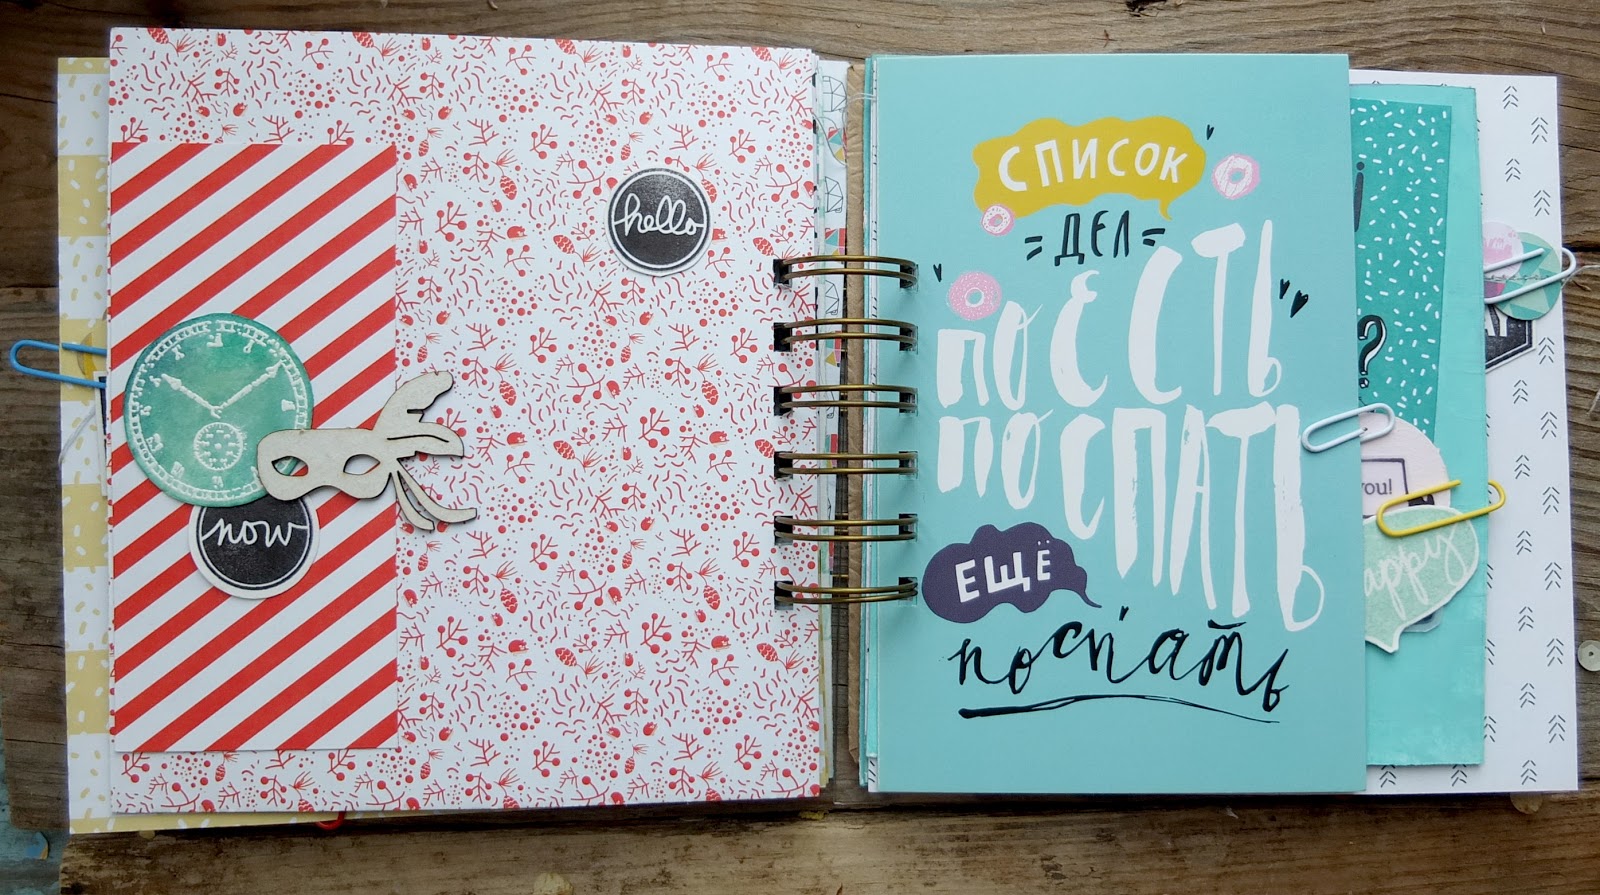 hello
now
СПИСОК
= ДЕЛ =
ПОЕСТЬ
ПОСПАТЬ
ЕЩЁ
поспать
?
you!
appy